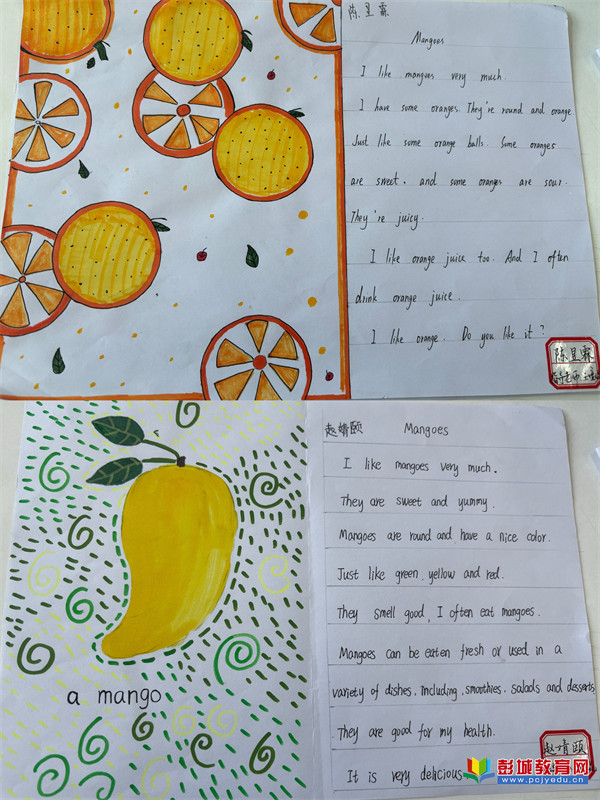 陈昱霖
Mangoes
I like mangoes very much.
I have some oranges. They're round and orange
Just like some orange balls. Some oranges
are sweet. and some oranges are sour.
They're juicy.
I like orange juice too. And I often
drink orange juice.
I like orange. Do you like it?
陈昱霖
赵婧颐 Mangoes
I like mangoes very much.
They are sweet and yummy.
Mangoes are round and have a nice color.
Just like green, yellow and red.
They smell good, I often eat mangoes.
Mangoes can be eaten fresh or used in a
variety of dishes, including, smoothies, salads and desserts
They are good for my health.
It is very delicious
a mango
赵婧颐
彭城教育网
www.pcjyedu.cn